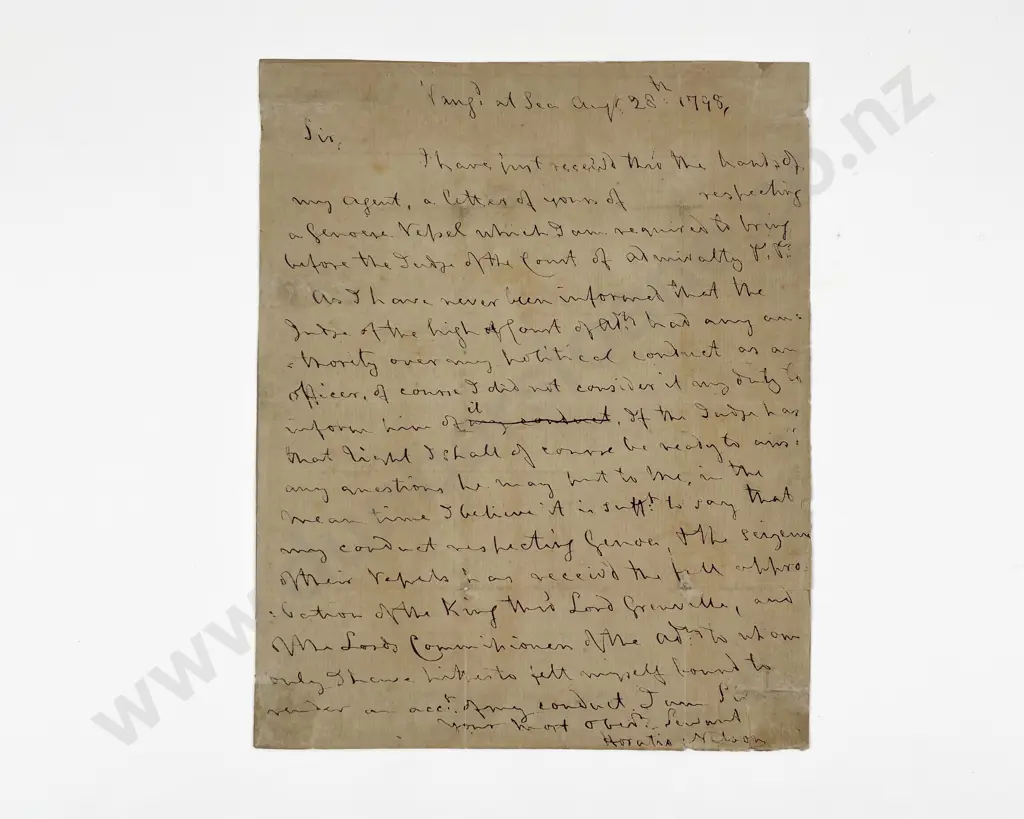 Vangd at Sea Augt. 28th: 1798,
Sir,
I have just receivd thro the hands of
my agent, a letter of yours of respecting
a Genoese Vessel which I am required to bring
before the Judge of the Court of admiralty
As I have never been informed that the
Judge of the high Court of Adty had any au=
=thority over my political conduct as an
officer, of course I did not consider it my duty to
inform him of it my conduct, If the Judge has
that right I shall of course be ready to ansr:
any questions he may put to me, in the
mean time I believe it is sufft: to say that
my conduct respecting Genoa, & the seizure
of their Vessels has receivd the full appro=
=bation of the King thro Lord Grenville, and
of the Lords Commissioners of the adty: to whom
only I have hitherto felt myself bound to
render an acct: of my conduct. I am Sir
Your most obedt: Servant
Horatio Nelson
www. o.nz